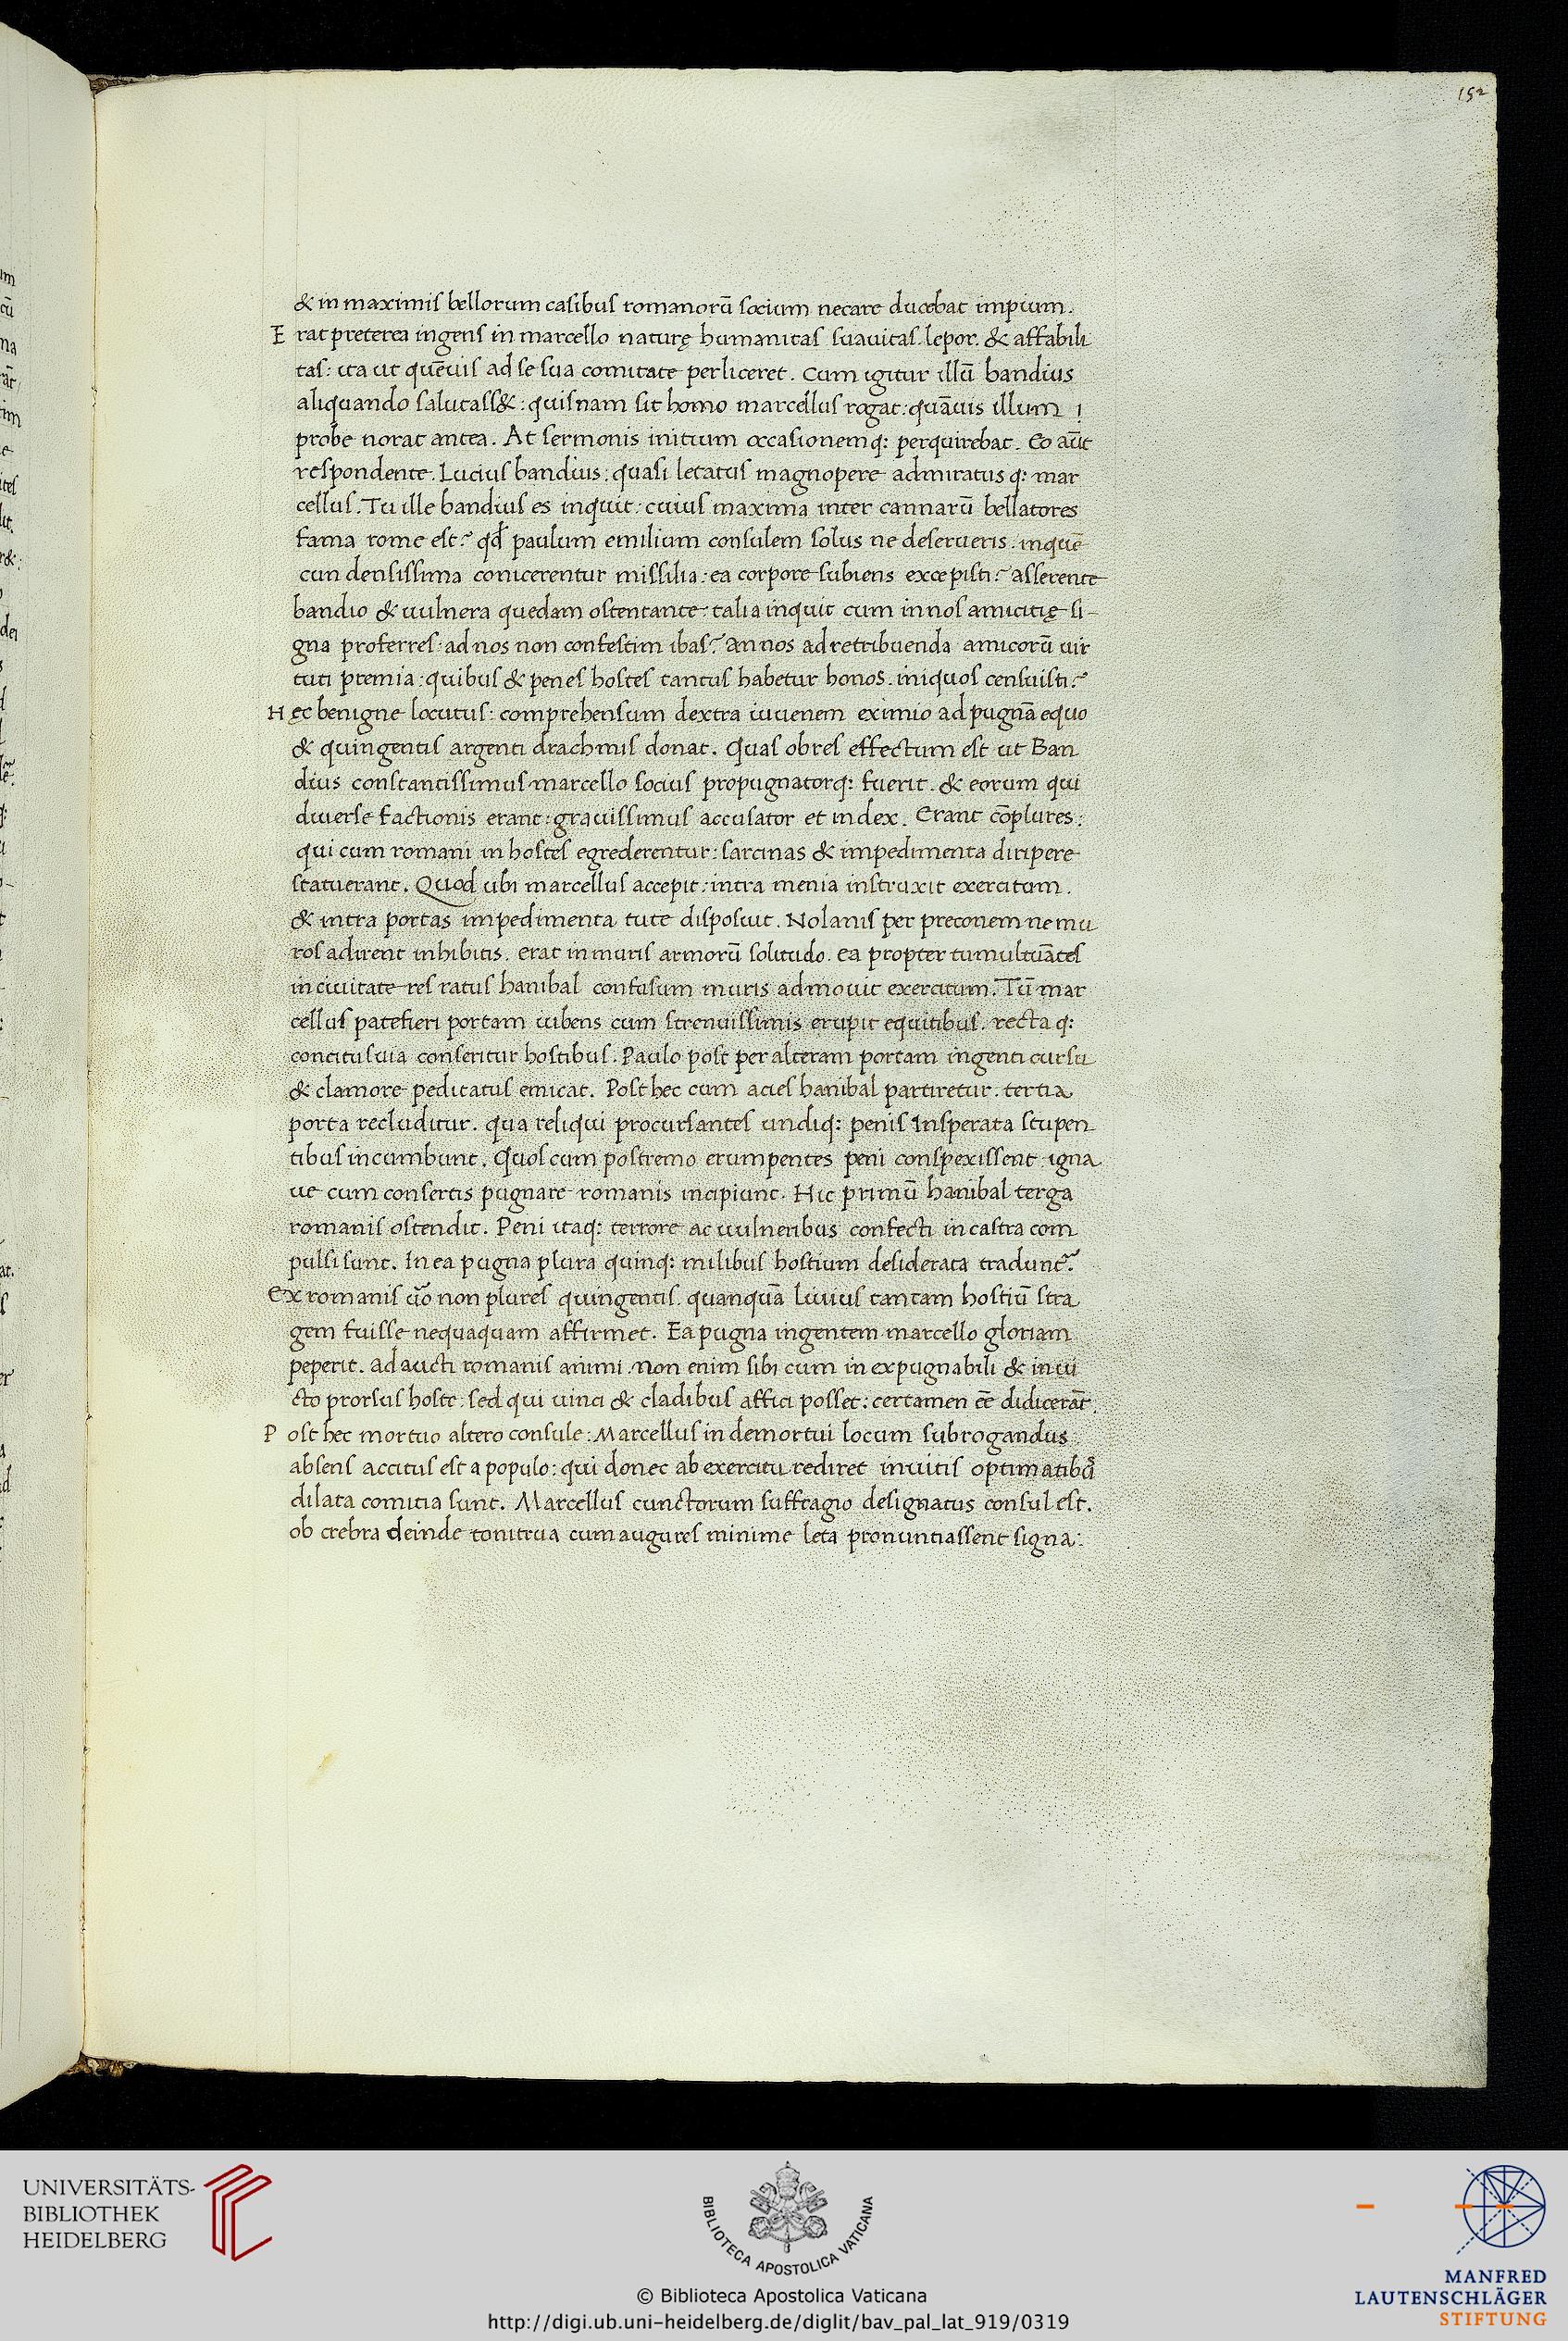 152
& in maximis bellorum casibus romanorū socium necare ducebat impium.
E rat preterea ingens in marcello naturę humanitas suauitas. lepor. & affabili
tas: ita ut quēuis ad se sua comitate perliceret. Cum igitur illū bandius
aliquando salutass&: quisnam sit homo marcellus rogat: quāuis illum
probe norat antea. At sermonis initium occasionemq: perquirebat. Eo aūt
respondente. Lucius bandius: quasi letatus magnopere admiratusq: mar
cellus. Tu ille bandius es inquit: cuius maxima inter cannarū bellatores
fama rome est? qđ paulum emilium consulem solus ne deserueris. inquē
cun densissima conicerentur missilia: ea corpore subiens excepisti? asserente
bandio & uulnera quedam ostentante talia inquit cum in nos amicitię si-
gna proferres: ad nos non confestim ibas? an nos ad rettibuenda amicorū uir
tuti premia: quibus & penes hostes tantus habetur honos. iniquos censuisti?
H ęc benigne locutus: comprehensum dextra iuuenem eximio ad pugnā equo
& quingentis argenti drachmis donat. Quas ob res effectum est ut Ban
dius constantissimus marcello socius propugnatorq: fuerit. & eorum qui
diuerse factionis erant: grauissimus accusator et index. Erant cōplures:
qui cum romani in hostes egrederentur: sarcinas & impedimenta diripere
statuerant. Quod ubi marcellus accepit: intra menia instruxit exercitum.
& intra portas impedimenta tute disposuit. Nolanis per preconem ne mu
ros adirent inhibitis. erat in muris armorū solitudo. ea propter tumultuātes
in ciuitate res ratus hanibal confusum muris admouit exercitum. Tū mar
cellus patefieri portam iubens cum strenuissimis erupit equitibus. rectaq:
concitus uia conseritur hostibus. Paulo post per alteram portam ingenti cursu
& clamore peditatus emicat. Post hec cum acies hanibal partiretur. tertia
porta recluditur. qua reliqui procursantes undiq: penis Insperata stupen
tibus incumbunt. Quos cum postremo erumpentes peni conspexissent igna
ue cum consertis pugnare romanis incipiunt. Hic primū hanibal terga
romanis ostendit. Peni itaq: terrore ac uulneribus confecti in castra com
pulsi sunt. In ea pugna plura quinq: milibus hostium desiderata tradunt̃.
Ex romanis ũo non plures quingentis. quanquā Liuius tantam hostiū stra
gem fuisse nequaquam affirmet. Ea pugna ingentem marcello gloriam
peperit. ad aucti romanis animi. non enim sibi cum inexpugnabili & inui
cto prorsus hoste: sed qui uinci & cladibus affici posset: certamen eē didicerāt.
P ost hec mortuo altero consule: Marcellus in demortui locum subrogandus
absens accitus est a populo: qui donec ab exercitu rediret inuitis optimatibꝰ
dilata comitia sunt. Marcellus cunctorum suffragio designatus consul est.
ob crebra deinde tonitrua cum augures minime leta pronuntiassent signa:
UNIVERSITÄTS-
BIBLIOTHEK
HEIDELBERG
BIBLIOTECA APOSTOLICA VATICANA
© Biblioteca Apostolica Vaticana
http://digi.ub.uni-heidelberg.de/diglit/bav_pal_lat_919/0319
MANFRED
LAUTENSCHLÄGER
STIFTUNG